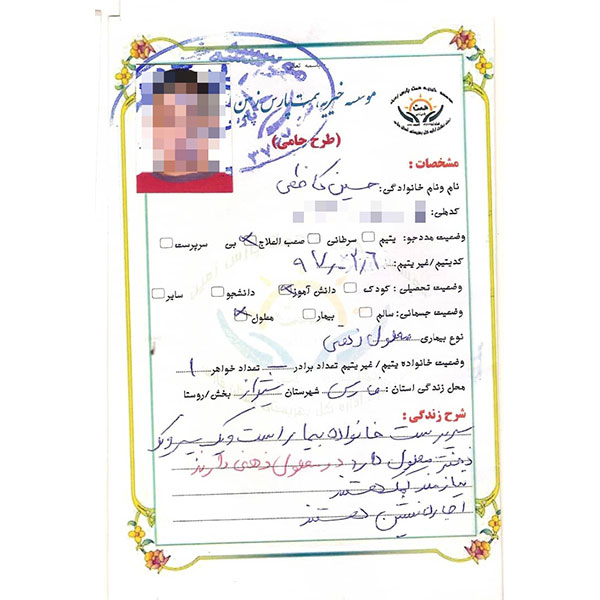 بسمه تعالی
موسسه خیریه همت پارس زمین
(طرح حامی)
مشخصات :
نام ونام خانوادگی: حسین کاظمی
کدملی:
وضعیت مددجو: یتیم سرطانی صعب العلاج بی سرپرست
کدیتیم/غیر یتیم:
وضعیت تحصیلی : کودک دانش آموز دانشجو سایر
وضعیت جسمانی: سالم بیمار معلول
نوع بیماری معلول ذهنی
وضعیت خانواده یتیم / غیر یتیم تعداد برادر — تعداد خواهر ۱
محل زندگی استان : فارس شهرستان شیراز بخش/روستا
شرح زندگی :
سرپرست خانواده بیمار است و یک پسر و یک
دختر معلول دارد در معلول ذهنی دارند
نیازمند کمک هستند
اجاره نشین هستند